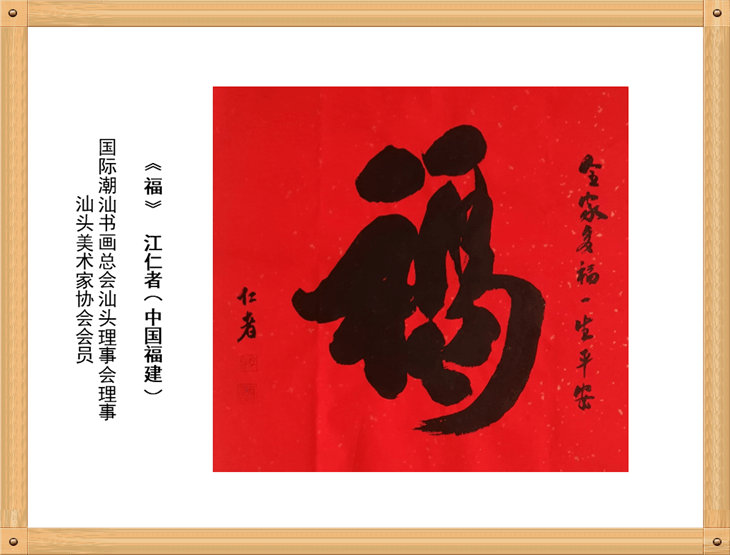 全家多福一生平安
福
仁者
《福》 江仁者（中国福建）
国际潮汕书画总会汕头理事会理事
汕头美术家协会会员